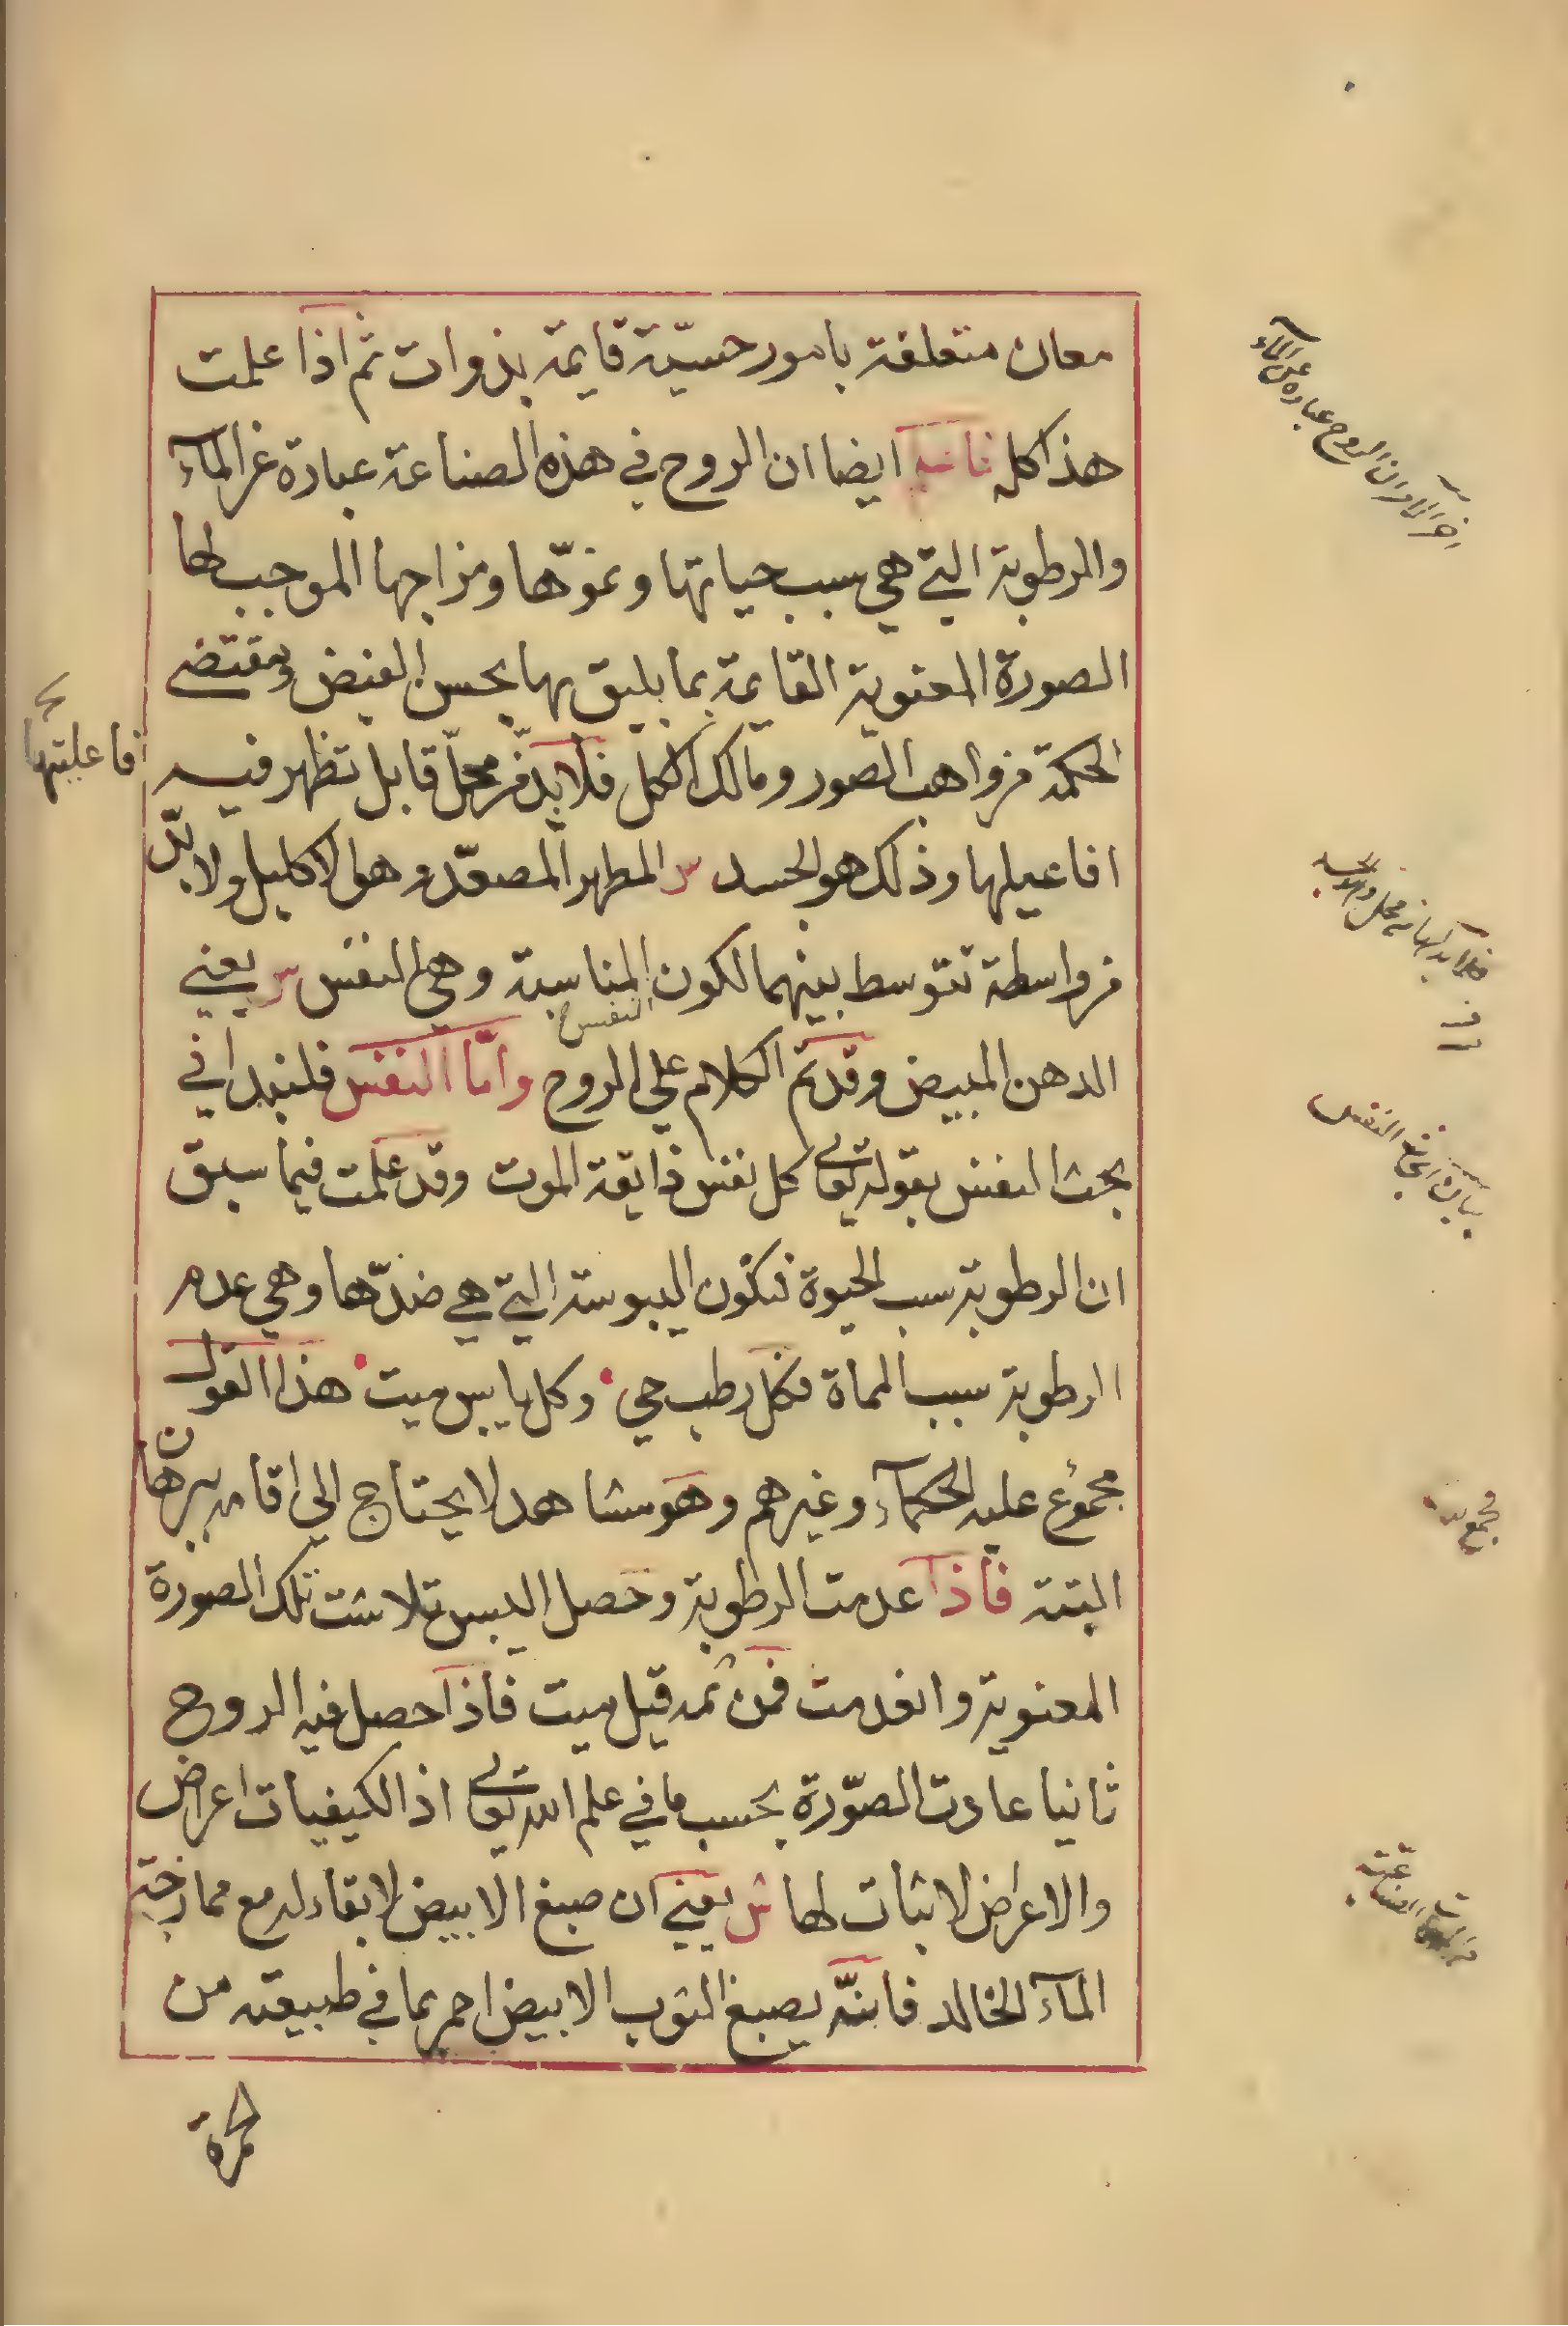 معان متعلقة بامور حسيّة قايمة بذوات ثم اذا علمت
هذا كله ايضا ان الروح في هذه الصناعة عبارة عن المآء
والرطوبة التي هي سبب حياتها ونموّها ومزاجها الموجب لها
الصورة المعنوية القايمة بما يليق بها بحسن الفيض ومقتضى
الحكمة من واهب الصور ومالك الكل فلا بد من محلّ قابل تظهر فيه
افاعيلها وذلك هو الجسد س المطهر المصعّد وهو الاكليل ولا بدّ
من واسطة تتوسط بينهما لكون المناسبة وهي النفس س يعني
الدهن المبيض وقد تم الكلام علي الروح وامّا النفس فلنبدا في
النفس
بحث النفس بقوله تعالى كل نفس ذايقة الموت وقد علمت فيما سبق
ان الرطوبة سبب الحيوة فتكون اليبوسة التي هي ضدّها وهي عدم
الرطوبة سبب المماة فكل رطب حي وكل يابس ميت هذا القول
مجموع عليه الحكمآء وغيرهم وهو مشاهد لا يحتاج الي اقامة برهان
البتة فاذا عدمت الرطوبة وحصل اليبس تلاشت تلك الصورة
المعنوية وانعدمت فمن ثمه قيل ميت فاذا حصل فيه الروح
ثانيا عادت الصّورة بحسب ما في علم الله تعالى اذ الكيفيات اعراض
والاعراض لا ثبات لها ش يعني ان صبغ الابيض لا بقاء له مع ممازجة
المآء الخالد فانّه يصبغ الثوب الابيض احمر بما في طبيعته من
حمرة
فاعليتها
ان الروح عبارة عن المآء